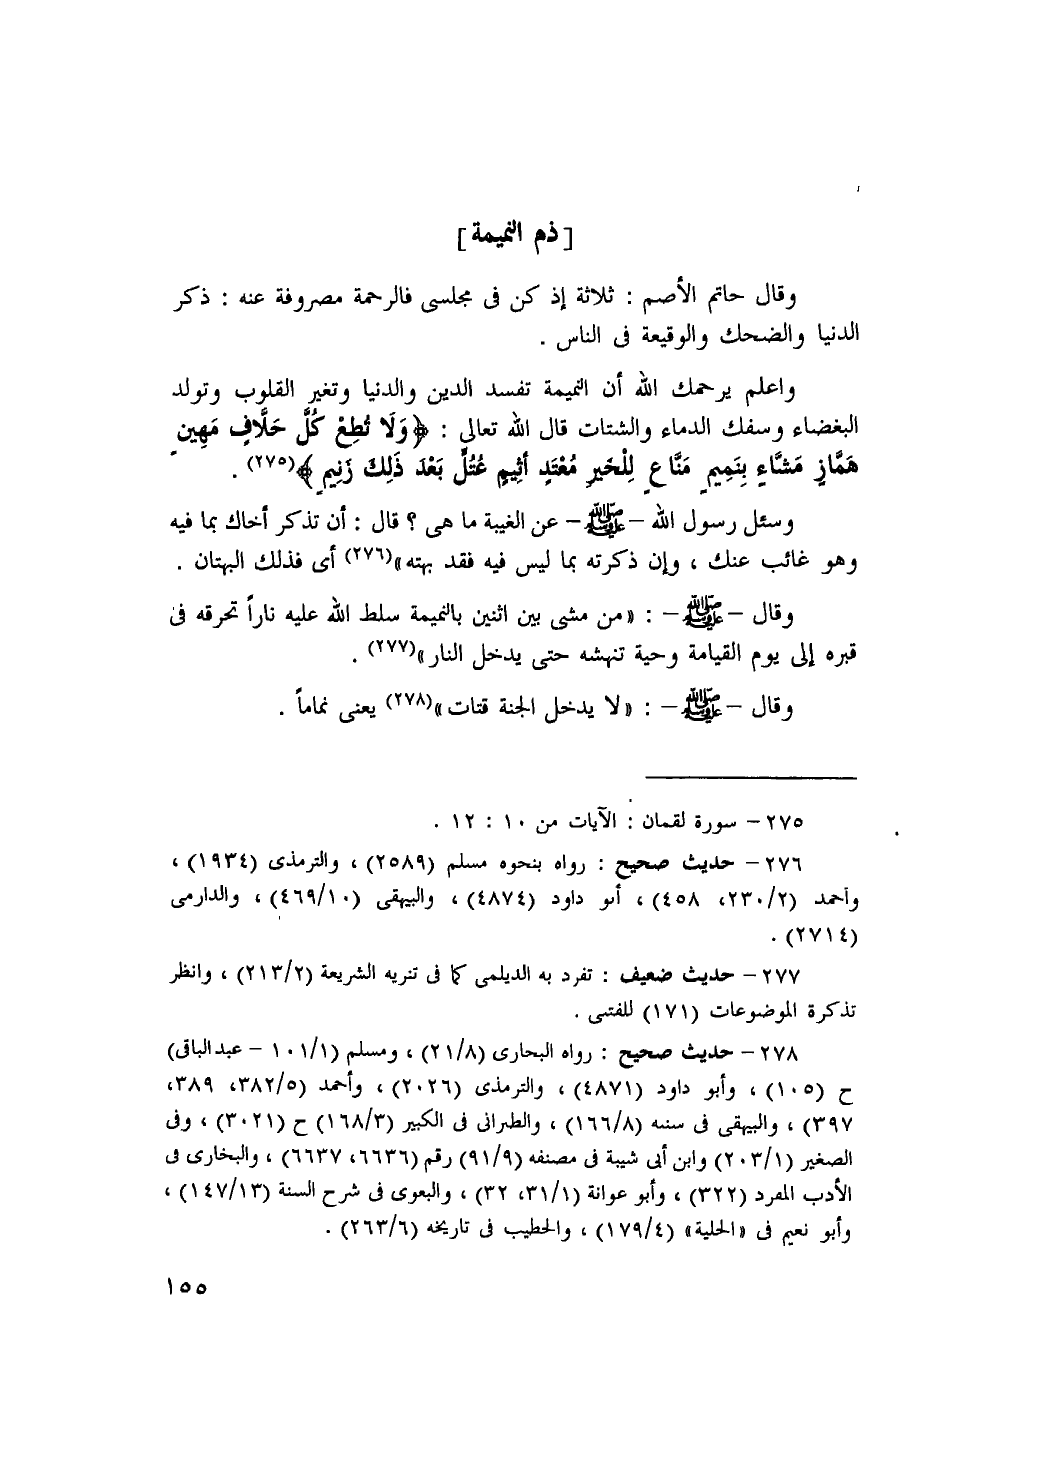 [ ذم النميمة ]
وقال حاتم الأصم : ثلاثة إذ كن فى مجلسى فالرحمة مصروفة عنه : ذكر
الدنيا والضحك والوقيعة فى الناس .
واعلم يرحمك الله أن النميمة تفسد الدين والدنيا وتغير القلوب وتولد
البغضاء وسفك الدماء والشتات قال الله تعالى : ﴿ وَلَا تُطِعْ كُلَّ حَلَّافٍ مَهِينٍ
هَمَّازٍ مَشَّاءٍ بِنَمِيمٍ مَنَّاعٍ لِلْخَيرِ مُعْتَدٍ أثِيمٍ عُتُلٍّ بَعْدَ ذَلِكَ زَنِيمٍ ﴾(٢٧٥) .
وسئل رسول الله – ﷺ – عن الغيبة ما هى ؟ قال : أن تذكر أخاك بما فيه
وهو غائب عنك ، وإن ذكرته بما ليس فيه فقد بهته»(٢٧٦) أى فذلك البهتان .
وقال – ﷺ – : «من مشى بين اثنين بالنميمة سلط الله عليه ناراً تحرقه فى
قبره إلى يوم القيامة وحية تنهشه حتى يدخل النار»(٢٧٧) .
وقال – ﷺ – : «لا يدخل الجنة قتات»(٢٧٨) يعنى نماماً .
٢٧٥ – سورة لقمان : الآيات من ١٠ : ١٢ .
٢٧٦ – حديث صحيح : رواه بنحوه مسلم (٢٥٨٩) ، والترمذى (١٩٣٤) ،
وأحمد (٢٣٠/٢، ٤٥٨) ، أبو داود (٤٨٧٤) ، والبيهقى (٤٦٩/١٠) ، والدارمى
(٢٧١٤) .
٢٧٧ – حديث ضعيف : تفرد به الديلمى كما فى تنزيه الشريعة (٢١٣/٢) ، وانظر
تذكرة الموضوعات (١٧١) للفتنى .
٢٧٨ – حديث صحيح : رواه البخارى (٢١/٨) ، ومسلم (١٠١/١ – عبد الباقى)
ح (١٠٥) ، وأبو داود (٤٨٧١) ، والترمذى (٢٠٢٦) ، وأحمد (٣٨٢/٥، ٣٨٩،
٣٩٧) ، والبيهقى فى سننه (١٦٦/٨) ، والطبرانى فى الكبير (١٦٨/٣) ح (٣٠٢١) ، وفى
الصغير (٢٠٣/١) وابن أبى شيبة فى مصنفه (٩١/٩) رقم (٦٦٣٦، ٦٦٣٧) ، والبخارى فى
الأدب المفرد (٣٢٢) ، وأبو عوانة (٣١/١، ٣٢) ، والبغوى فى شرح السنة (١٤٧/١٣) ،
وأبو نعيم فى «الحلية» (١٧٩/٤) ، والخطيب فى تاريخه (٢٦٣/٦) .
١٥٥